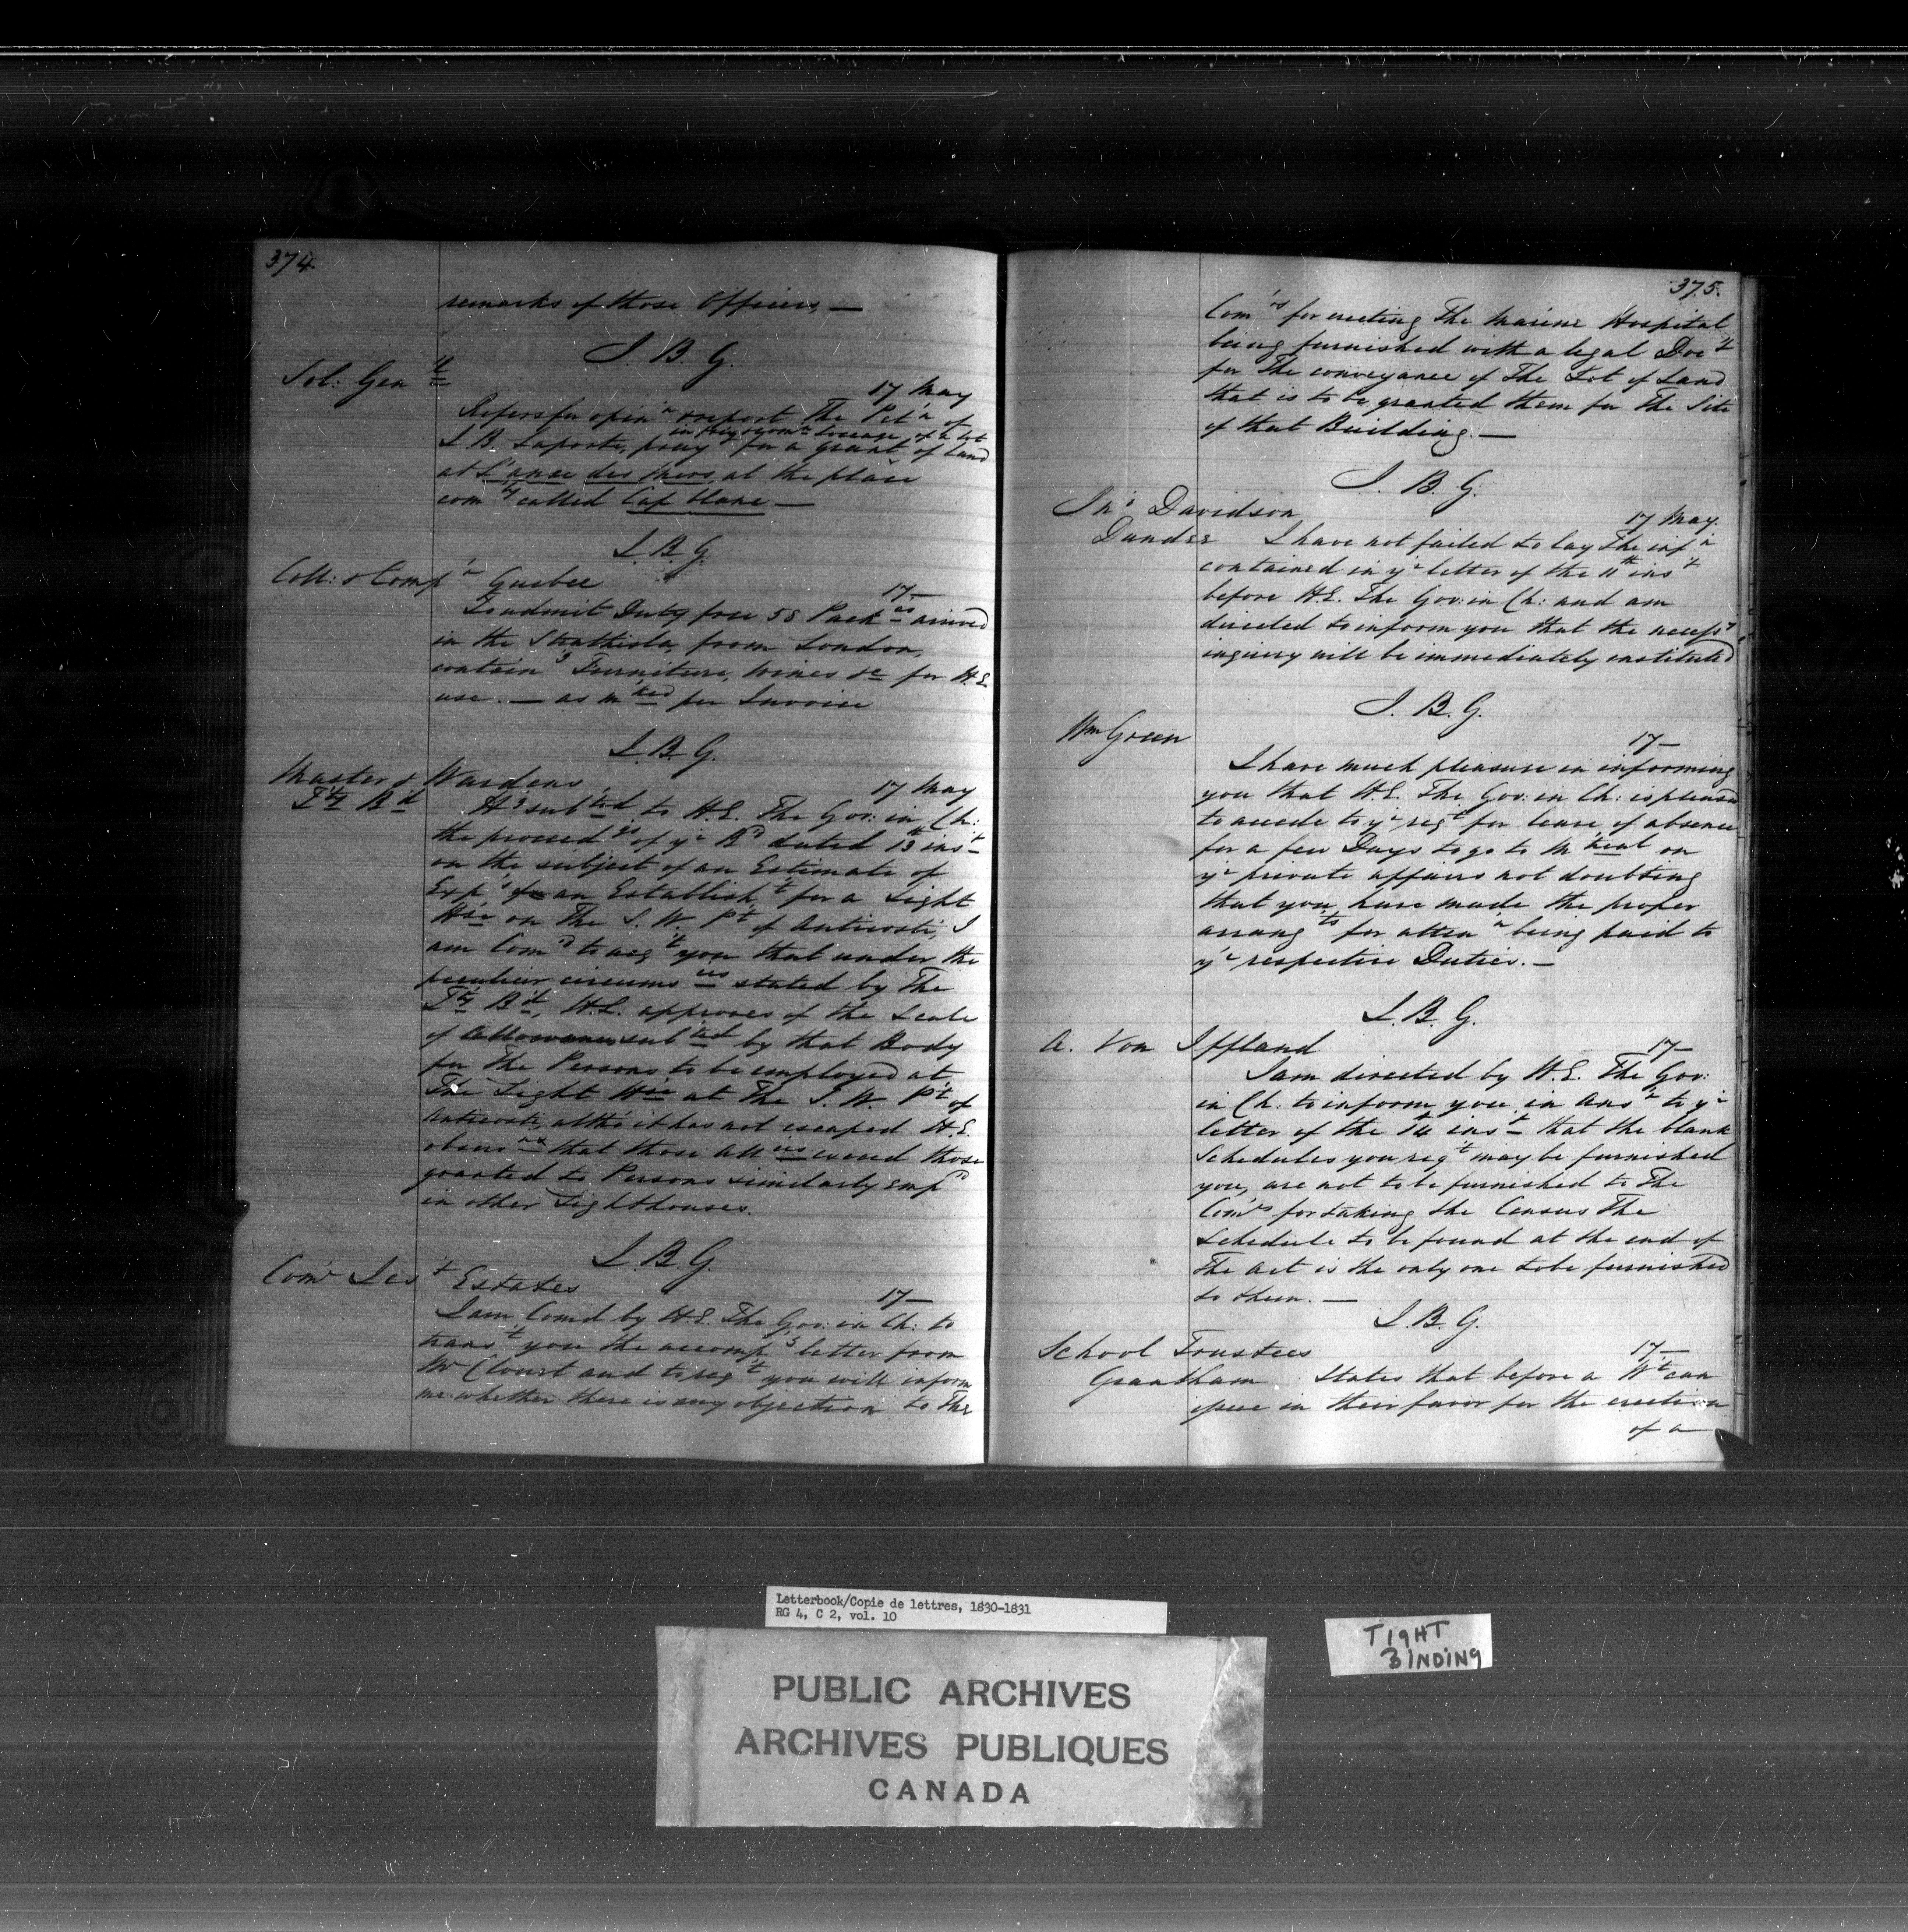 374
remarks of those Officers, —
J. B. G.
Sol: Gen^l
17 May
Refers for opin^n & report The Pet^n of
in free & com^n Soccage of a lot
J. B. Laporte, pray^g for a grant of Land
at L'ance des Meres, at the place
com^ly called Cap blanc —
J. B. G.
Coll: & Comp^r Quebec
17—
To admit Duty free 58 Pack^es arrived
in the Strathisla, from London,
contain^g Furniture, Wines &c for H.E.
use. — as m^ked per Invoice
J. B. G.
Master & Wardens
T^ty B^d
17 May
H^g sub^ted to H.E. The Gov: in Ch:
the proceed^gs of y^r B^d dated 13^th ins^t
on the subject of an Estimate of
Exp^s of an Establish^t for a Light
H^se on The S. W. P^t of Anticosti, I
am Com^d to acq^t you that under the
peculiar circums^ces stated by The
T^ty B^d, H.E. approves of the Scale
of Allowances sub^ted by that Body
for The Persons to be employed at
The Light H^se at The S. W. P^t of
Anticosti, altho' it has not escaped H.E.
observ^n that those All^ces exceed those
granted to Persons similarly emp^d
in other Lighthouses.
J. B. G.
Com^r Jes^t Estates
17—
I am Com^d by H.E. The Gov: in Ch: to
trans^t you the accomp^g letter from
M^r Clouet and to req^t you will inform
me whether there is any objection to The
375.
Com^rs for erecting The Marine Hospital
being furnished with a legal Doc^t
for The conveyance of The Lot of Land
that is to be granted them for The Site
of that Building. —
J. B. G.
Jn^o Davidson
Dundee
17 May.
I have not failed to lay The inf^n
contained in y^r letter of the 11^th ins^t
before H.E. The Gov: in Ch: and am
directed to inform you that the necess^y
inquiry will be immediately instituted
J. B. G.
Wm Green
17—
I have much pleasure in informing
you that H.E. The Gov: in Ch: is pleased
to accede to y^r req^t for leave of absence
for a few Days to go to M^treal on
y^r private affairs not doubting
that you have made the proper
arrang^ts for atten^n being paid to
y^r respective Duties. —
J. B. G.
A. Von Iffland
17—
I am directed by H.E. The Gov:
in Ch: to inform you in Ans^r to y^r
letter of the 14 ins^t that the blank
Schedules you req^t may be furnished
you, are not to be furnished to The
Com^rs for taking the Census The
Schedule to be found at the end of
The Act is the only one to be furnished
to them. —
J. B. G.
School Trustees
17—
Grantham States that before a W^t can
issue in their favor for the erection
of a
Letterbook/Copie de lettres, 1830-1831
RG 4, C 2, vol. 10
TIGHT
BINDING
PUBLIC ARCHIVES
ARCHIVES PUBLIQUES
CANADA